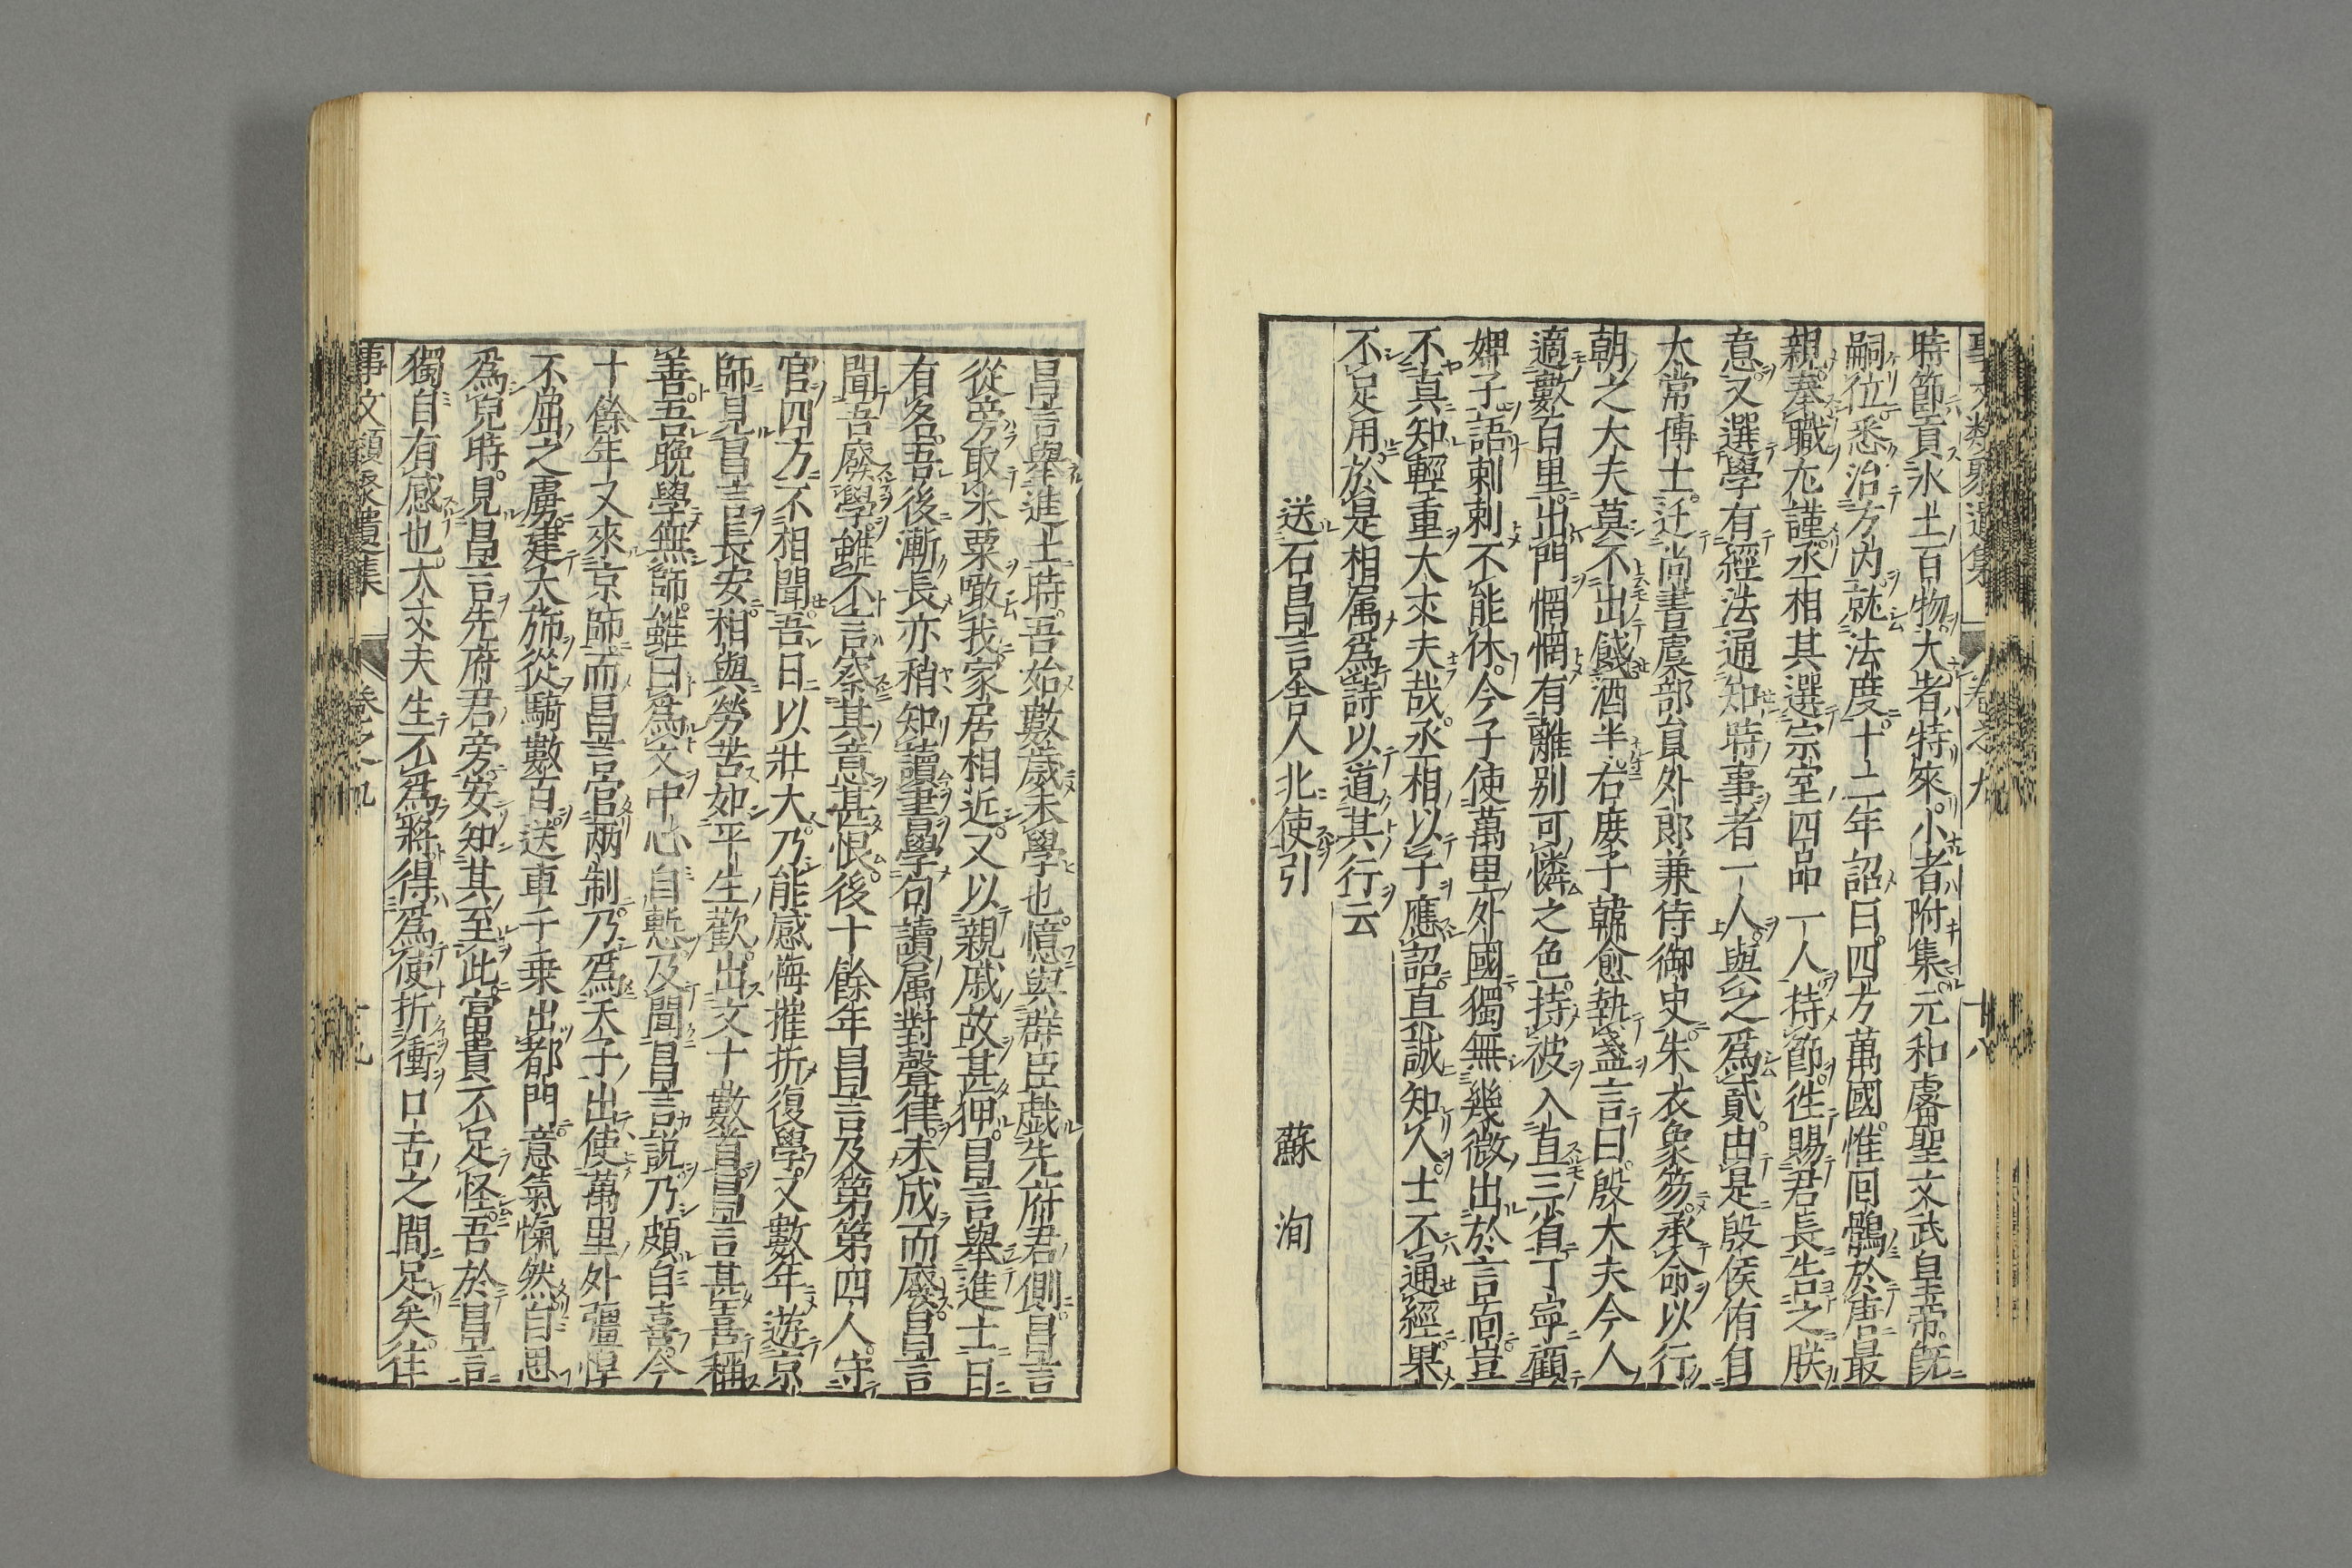 時節貢水土百物大者特來小者附集元和睿聖文武皇帝既
嗣位悉治方内就法度十二年詔曰四方萬國惟囘鶻於唐最
親奉職尤謹丞相其選宗室四品一人持節徃賜君長告之朕
意又選學有經法通知時事者一人與之爲貳由是殷侯侑自
大常博士迁尚書虞部員外郎兼侍御史朱衣象笏承命以行
朝之大夫莫不出餞酒半右庻子韓愈執盞言曰殷大夫今人
適數百里出門惘惘有離别可憐之色持被入直三省丁寧顧
婢子語剌剌不能休今子使萬里外國獨無幾微出於言面豈
不真知輕重大丈夫哉丞相以子應詔直誠知人士不通經果
不足用於是相属爲詩以道其行云
送石昌言舍人北使引 蘇洵
昌言舉進士時吾始數歲未學也憶與群臣戯先府君側昌言
從旁取米粟噉我家居相近又以親戚故甚狎昌言舉進士日
有名吾後漸長亦稍知讀書學句讀属對聲律未成而廢昌言
聞吾廢學雖不言察其意甚恨後十餘年昌言及第第四人守
官四方不相聞吾日以壯大乃能感悔摧折復學又數年遊京
師見昌言長安相與勞苦如平生歡出文十數首昌言甚喜稱
善吾晩學無師雖曰爲文中心自慙及聞昌言説乃頗自喜今
十餘年又來京師而昌言官兩制乃爲天子出使萬里外彊悍
不屈之虜建大旆從騎數百送車千乗出都門意氣愾然自思
爲兒時見昌言先府君旁安知其至此富貴不足怪吾於昌言
獨自有感也大丈夫生不爲將得爲使折衝口舌之間足矣徃
事文類聚遺集 卷之九 十九